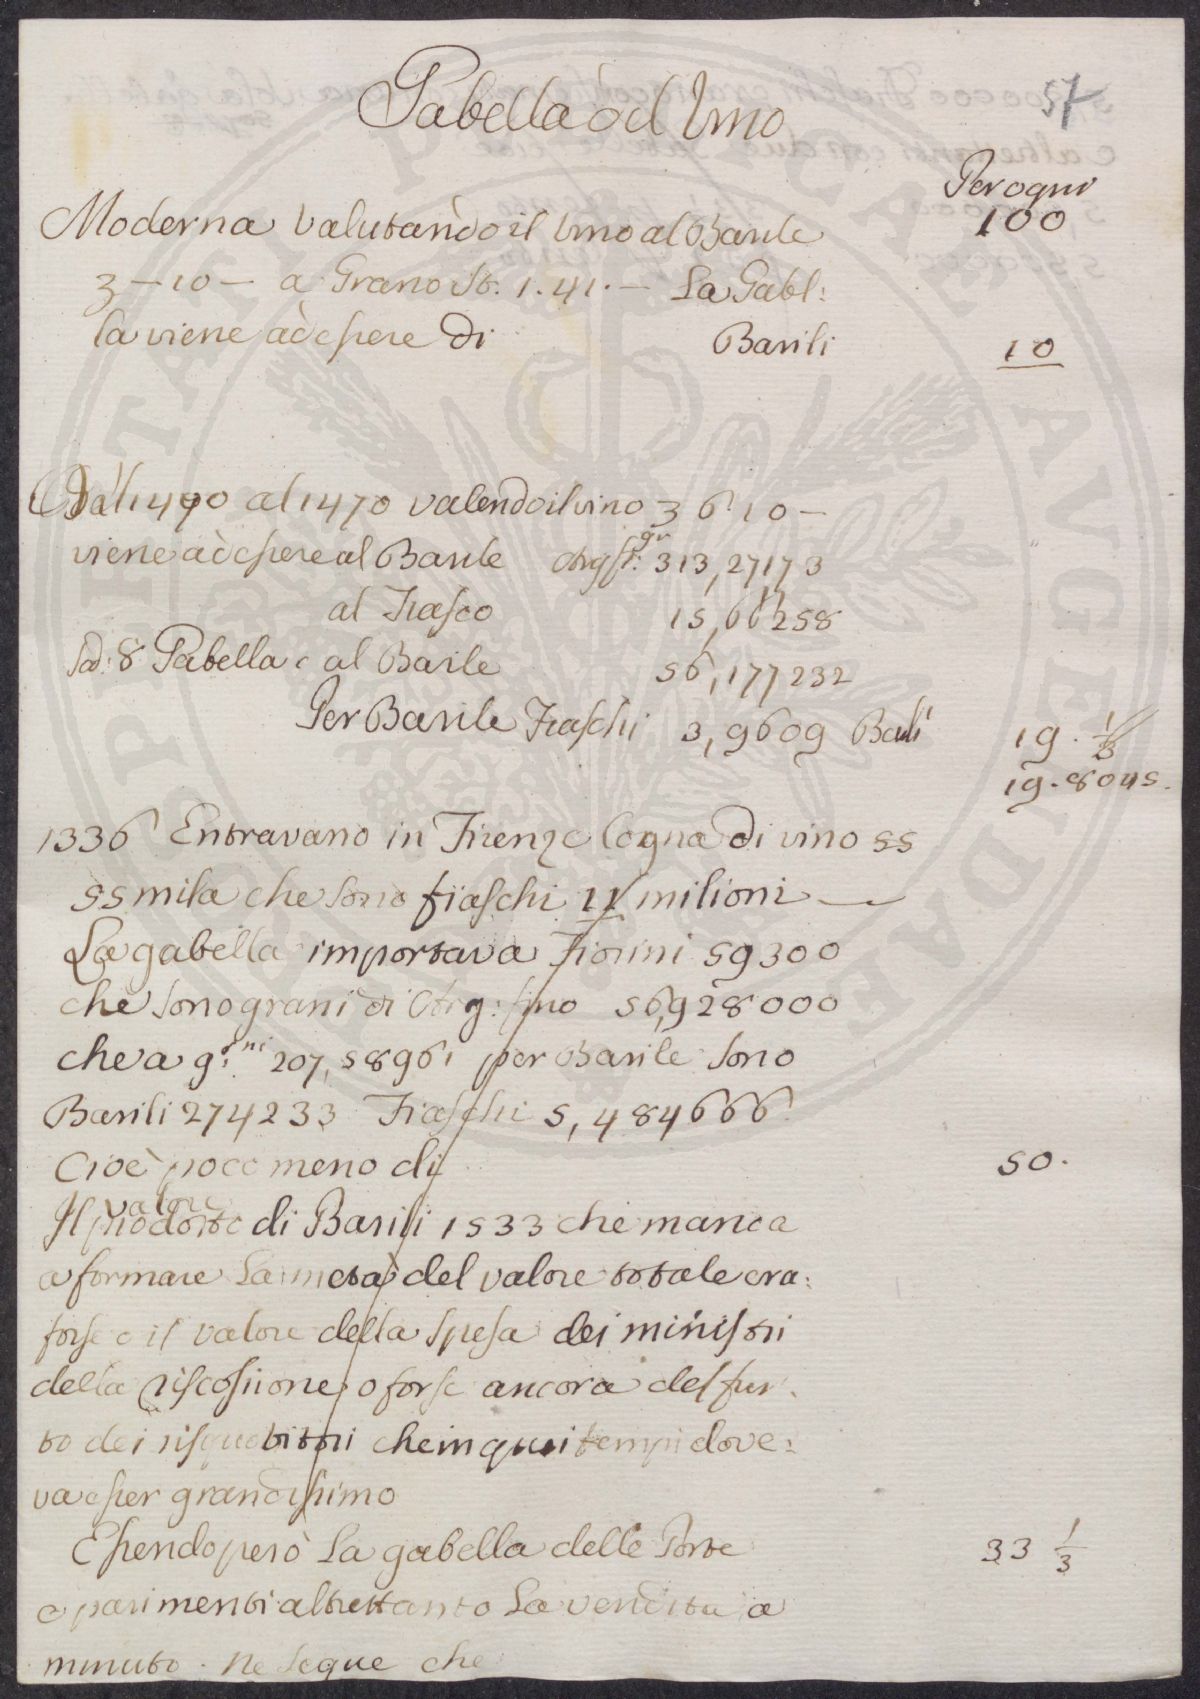 57
Gabella del Vino
Per ogni
100
Moderna valutando il vino al Barile
3 — 10 — a Grano St. 1. 41. — La Gabl:
la viene ad essere di Barili 10
Dal 1490 al 1470 valendo il vino 3 6 10 —
viene ad essere al Barile Arg. f. gr 313,27173
al Fiasco 15,66258
Sd: 8 Gabella e al Barile 56,177232
Per Barile Fiaschi 3,9609 Barli 19. 1/3
19.8045.
1336 Entravano in Firenze Cogna di vino 55
55 mila che sono fiaschi 11 milioni —
La gabella importava Fiorini 59300
che sono grani di Arg: fino 56,928000
che a g.ni 207,58961 per Barile sono
Barili 274233 Fiaschi 5,484666
Cioè poco meno di 50.
valore
Il prodotto di Barili 1533 che manca
a formare La metà del valore totale era:
forse o il valore della spesa dei ministri
della riscossione, o forse ancora del fur:
to dei risquotitori che in quei tempi dove:
va esser grandissimo
Essendo però La gabella delle Porte 33 1/3
e parimenti altrettanto La vendita a
minuto. Ne segue che
HOSPITALITATI PUBLICAE AUGENDAE